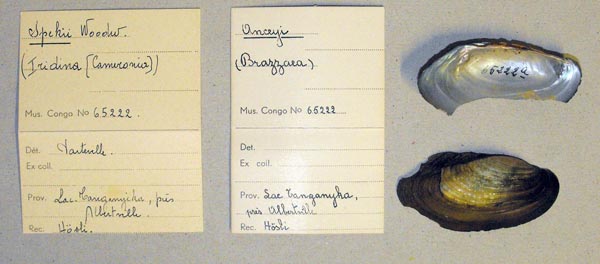 Spekii Woodw.
(Iridina (Cameronia))
Mus. Congo No 65.222.
Dét. Dartevelle.
Ex coll.
Prov. Lac Tanganyika, près
Albertville.
Rec. Hösli.
Anceyi
(Brazzaea)
Mus. Congo No 65222
Dét.
Ex coll.
Prov. Lac Tanganyka,
près Albertville
Rec. Hösli
65222a